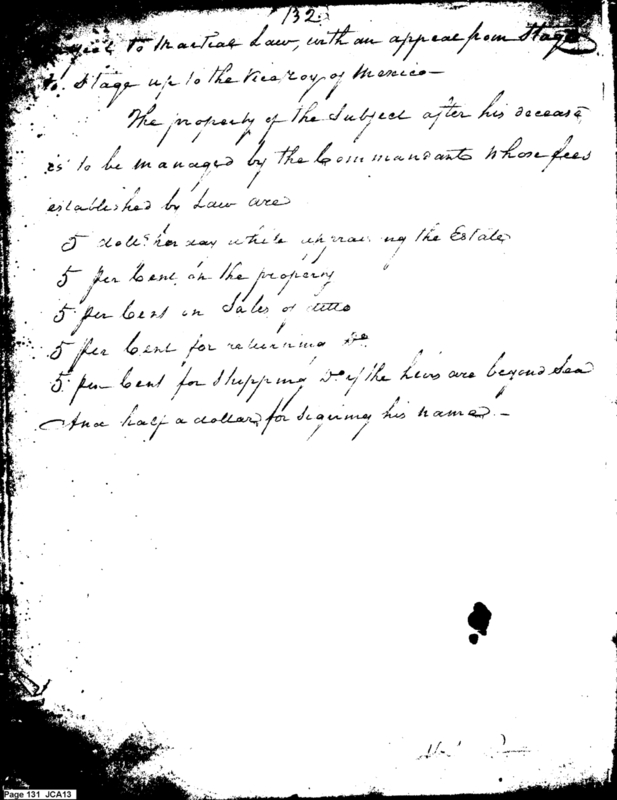 132.
to Martial Law, with an appeal from Stage
to Stage up to the Viceroy of Mexico —
The property of the Subject after his decease
is to be managed by the Commandants whose fees
established by Law are
5 doll.s per day while appraising the Estate
5 per Cent on the property
5 per Cent on Sales of ditto
5 per Cent for returning Do.
5 per Cent for Shipping Do. if the heirs are beyond Sea
And half a dollar for signing his name. —
Page 131 JCA13